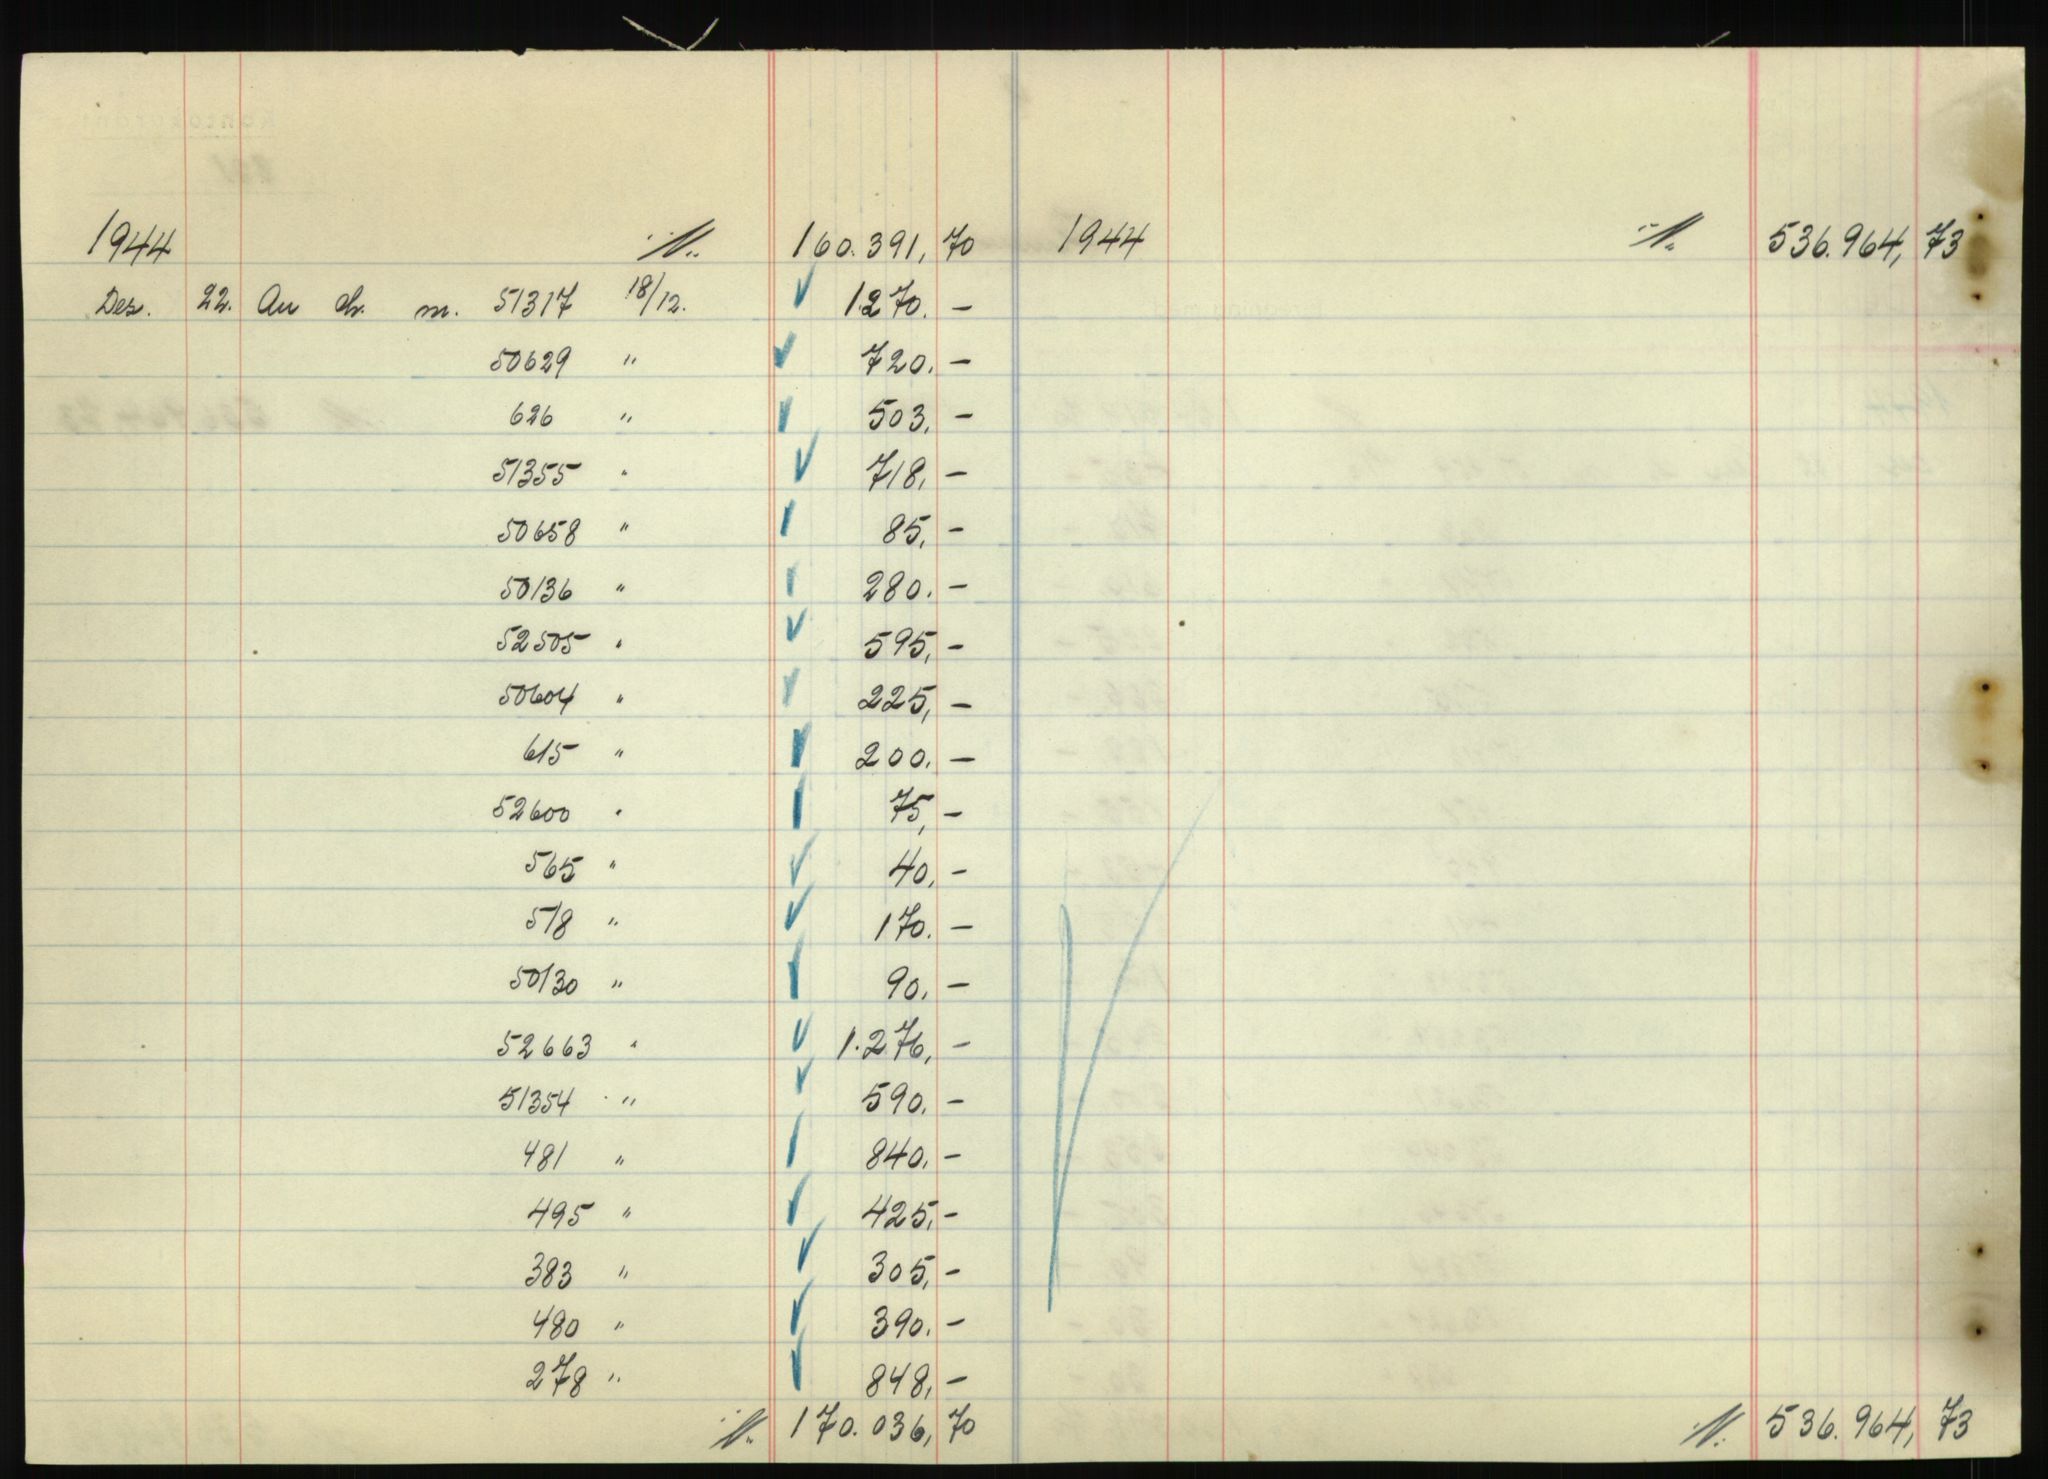 1944 ./. 160.391,70 1944 ./. 536.964,73
Des. 22. An ch. m. 51317 18/12. 1.270.-
50629 " 720.-
626 " 503,-
51355 " 718,-
50658 " 85,-
50136 " 280.-
52505 " 595,-
50604 " 225,-
615 " 200.-
52600 " 75,-
565 " 40,-
518 " 170.-
50130 " 90,-
52663 " 1.276,-
51354 " 590.-
481 " 840.-
495 " 425,-
383 " 305,-
480 " 390.-
278 " 848,-
./. 170.036,70 ./. 536.964,73